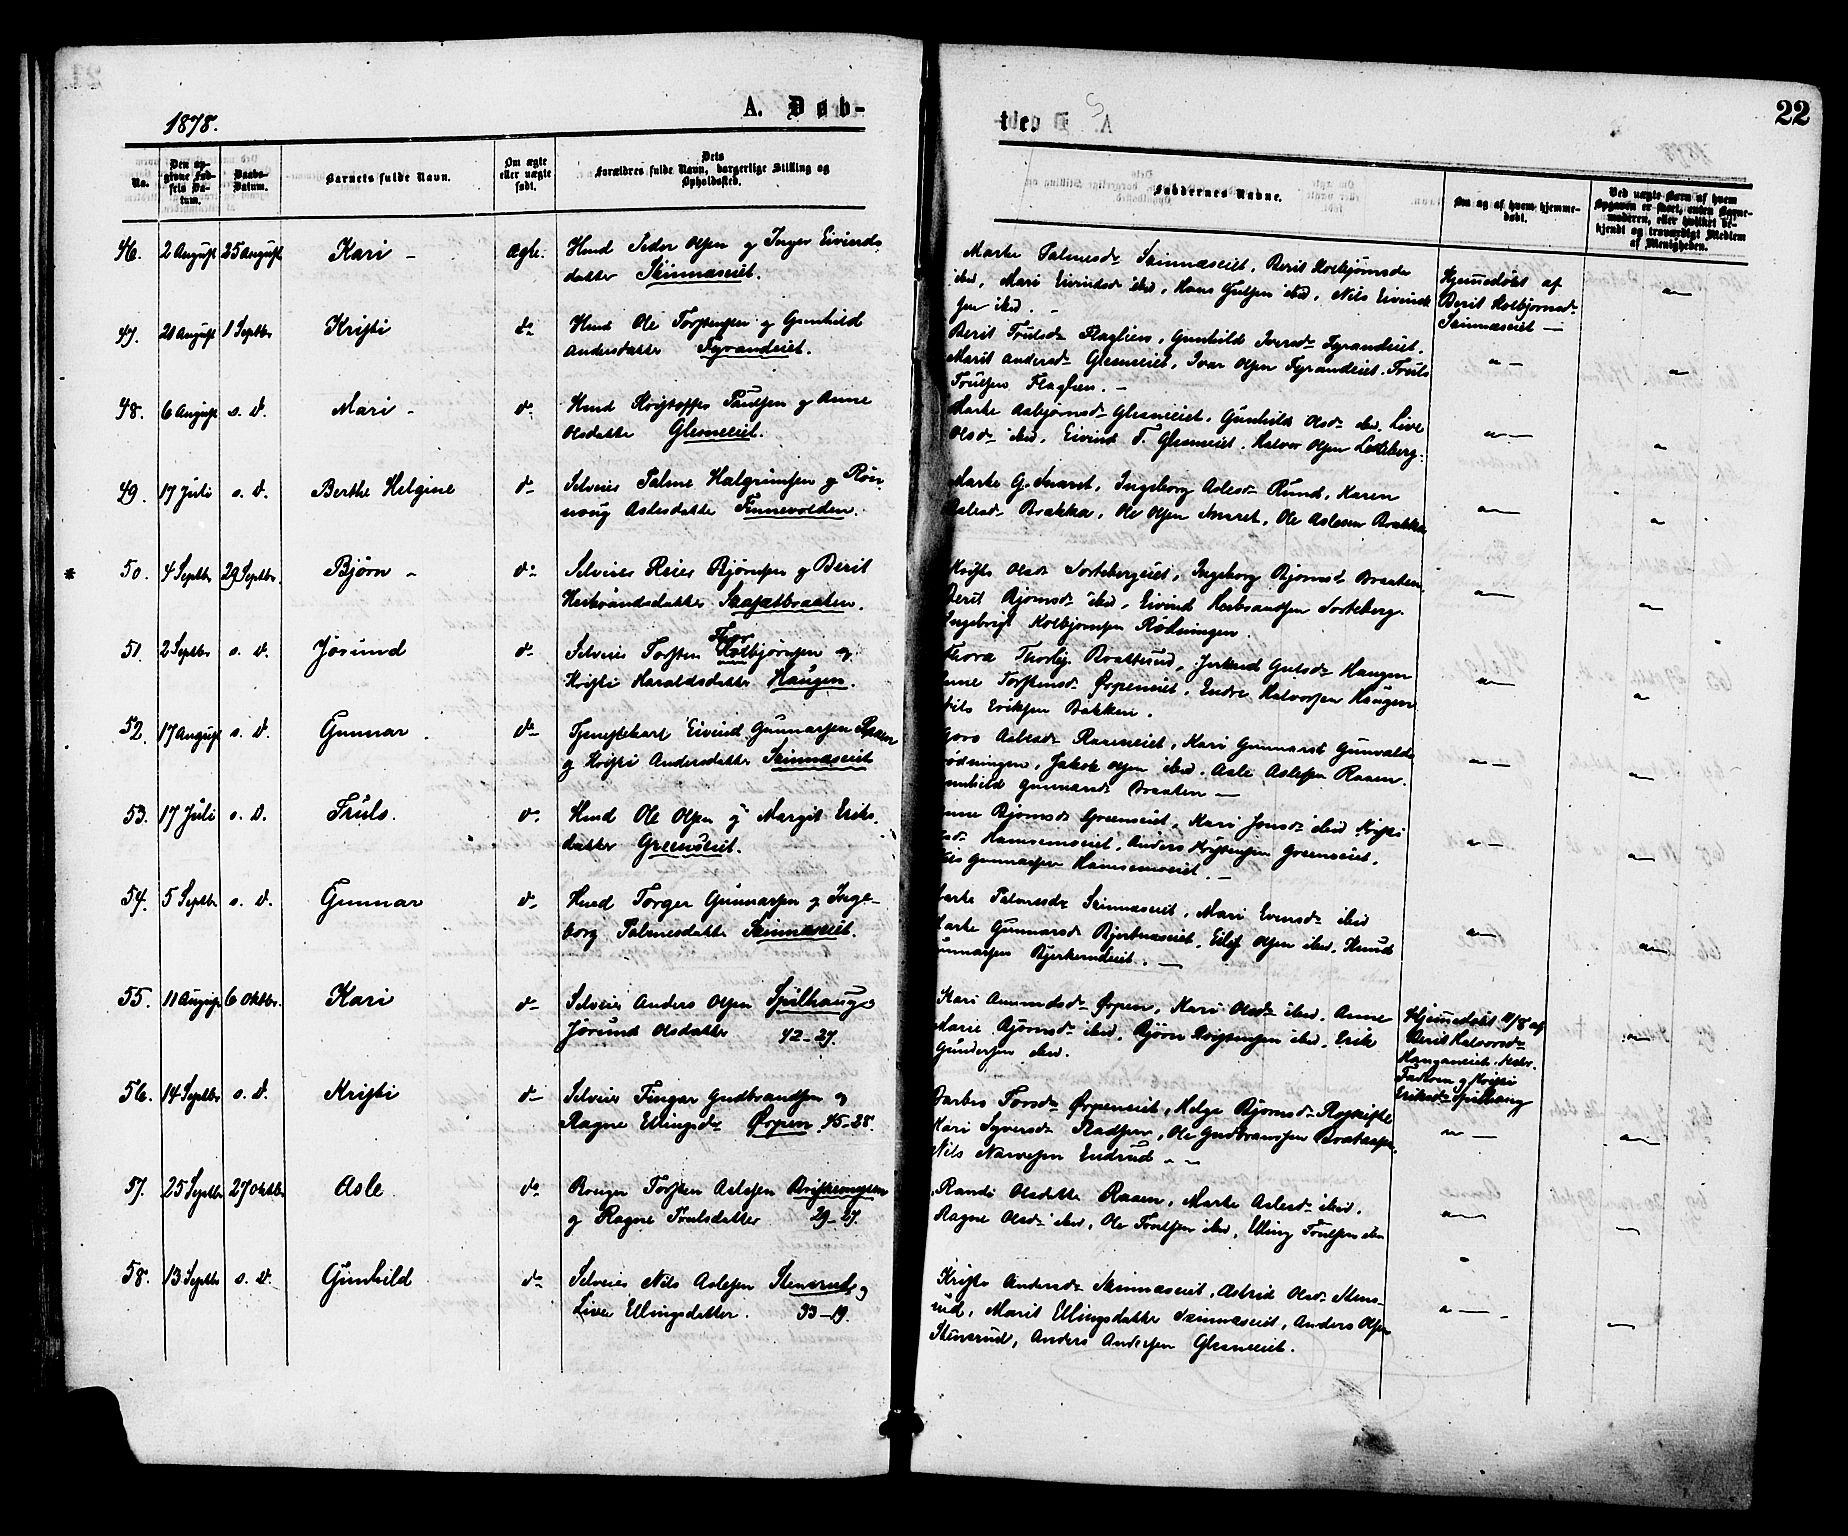 1878.
A. Døb-
te.
22
No.
Den op-
givne Fød-
sels Da-
tum.
Daabs-
Datum.
Barnets fulde Navn.
Om ægte
eller uægte
født.
Dets
Forældres fulde Navn, borgerlige Stilling og
Opholdssted.
Faddernes Navne.
Om og af hvem hjemme-
døbt.
Ved uægte Børn af hvem
Opgaven er skeet, enten Barne-
moderen, eller hvilket be-
kjendt og troværdigt Medlem
af Menigheden.
46. 2 August 25 August Kari - ægte. Husmd Peder Olsen og Inger Eivinds
datter Skinnæseiet.
Marte Palmesdr Skinnæseiet, Berit Kolbjørnsdr
ibid, Mari Eivindsdr ibid, Hans Gulsen ibid, Nils Eivind
sen ibid. -
Hjemmedøbt af
Berit Kolbjørnsdr
Skinnæseiet -
47. 20 August 1 Septbr Kristi do Husmd Ole Torstensen og Gunhild
Andersdatter Fyrandeiet.
Berit Trulsdr Flaglien, Gunhild Iversdr Fyrandeiet.
Marit Andersdr Glesneeiet, Ivar Olsen Fyrandeiet. Truls
Trulsen Flaglien. -
48. 6 August s. D. Mari - do Husmd Kristoffer Paulsen og Anne
Olsdatter Glesneeiet.
Marte Asbjørnsdr Glesneeiet, Gunhild Olsdr ibid, Live
Olsdr ibid, Eivind T. Glesneeiet. Halvor Olsen Lokeberg.
49. 17 Juli s. D. Berthe Helgine do Selveier Palme Halgrimsen og Røn
noug Aslesdatter Finnevolden.
Marte G. Snaret, Ingeborg Aslesdr Rund, Karen
Aslesdr Brækka, Ole Olsen Snaret, Ole Aslesen Brækka
* 50. 4 Septbr 29 Septbr. Bjørn - do Selveier Reier Bjørnsen og Berit
Herbrandsdatter Skafætbraaten.
Kristi Olsdr Sorteberget, Ingeborg Bjørnsdr Braaten
Berit Bjørnsdr ibid, Eivind Herbrandsen Sorteberg.
Ingebrigt Kolbjørnsen Rødningen.
51. 2 Septbr s. D. Jørund do Selveier Torsten Thor
Kolbjørnsen og
Kristi Haraldsdatter Haugen.
Thora Thorlej. Brattsund, Jertrud Gulsdr Haugen
Anne Torstensdr Ørpeneiet, Endre Halvorsen Haugen
Nils Eriksen Bakken.
52. 17 August s. D. Gunnar. do Tjenestekarl Eivind Gunnarsen
og Kristi Andersdatter Skinnæseiet
Goro Aslesdr Raaeneiet, Kari Gunnarsdr Gunvalds
rødningen, Jakob Olsen ibid. Asle Aslesen Raaen.
Gunhild Gunnarsdr Braaten -
53. 17 Juli s. D. Truls. do Husmd Ole Olsen og Margit Eriks
datter Greenseiet.
Anne Bjørnsdr Greenseiet, Kari Jonsdr ibid Kristi
Hansemoeiet, Anders Kristensen Greenseiet.
Gunnarsen Hansemoeiet. -
54. 5 Septbr s. D. Gunnar do Husmd Torger Gunnarsen og Inge-
borg Palmesdatter Skinnæseiet.
Marte Palmesdr Skinnæseiet, Mari Evensdr ibid
Marte Gunnarsdr Bjertnæseiet, Eilif Olsen ibid, Knud
Gunnarsen Bjerkerudeiet. -
55. 11 August 6 Oktbr. Kari do Selveier Anders Olsen Spilhaug og
Jørund Olsdatter 42-27.
Kari Amundsdr Ørpen, Kari Olsdr ibid, Anne
Marie Bjørnsdr ibid, Bjørn Kristensen ibid, Erik
Gundersen ibid.
Hjemmedøbt 11/8 af
Berit Halvorsdr
Haugeneiet,
Fadren og Kristi
Eriksdr Spilhaug
56. 14 Septbr s. D. Kristi do Selveier Fingar Gudbrandsen og
Ragne Ellingsdr Ørpen. 45-38.
Barbro Torsdr Ørpeneiet, Helge Bjørnsdr
Kari Syversdr Pladsen, Ole Gudbrandsen
Nils Narvesen Endrud - -
57. 25 Septbr 27 Oktbr Asle. do Bruger Torsten Aslesen
og Ragne Trulsdatter 29-27.
Randi Olsdatter Raaen, Marte Aslesdr ibid,
Ragne Olsdr ibid, Ole Trulsen ibid, Elling Trulsen ibid
58. 13 Septbr s. D. Gunhild do Selveier Nils Aslesen Stensrud og
Live Ellingsdatter. 33-19.
Kristi Andersdr Skinnæseiet, Astrid Olsdr Stens-
rud, Marit Ellingsdatter Skinnæseiet, Anders Olsen
Stensrud, Anders Andersen Glesneeiet.